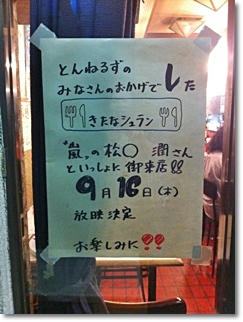 とんねるずの
みなさんのおかげでした
きたなシュラン
"嵐"の松〇 潤さん
といっしょに御来店!!
9月16日(木)
放映決定
お楽しみに!!